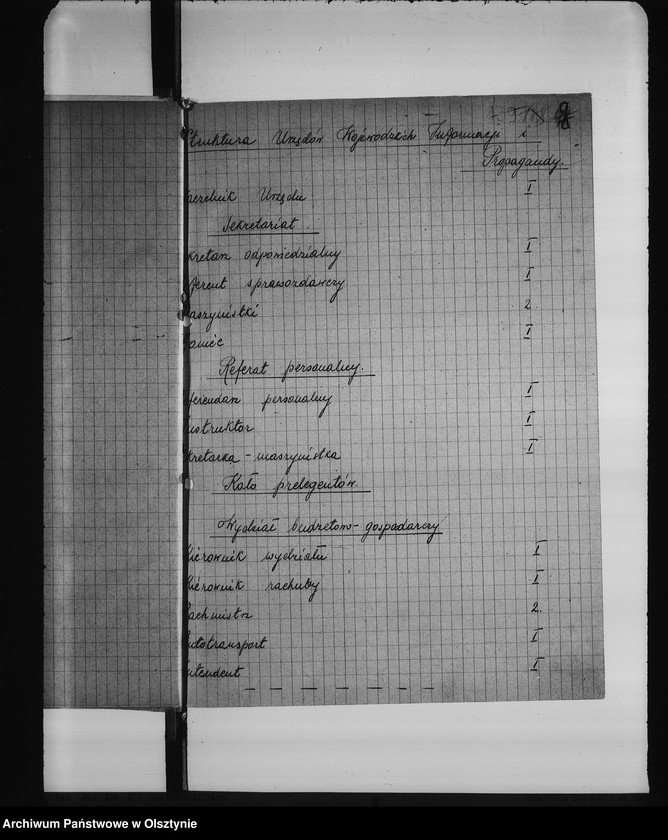 Struktura Urzędów Wojewódzkich Informacji i
Propagandy.
aczelnik Urzędu I
Sekretariat.
kretarz odpowiedzialny I
ferent sprawozdawczy I
aszynistki 2
oniec I
Referat personalny.
eferendarz personalny I
nstruktor I
kretarka - maszynistka I
Koło prelegentów.
Wydział budżetowo-gospodarczy
Kierownik wydziału I
Kierownik rachuby I
Rachmistrz 2.
utotransport I
ntendent I
Archiwum Państwowe w Olsztynie